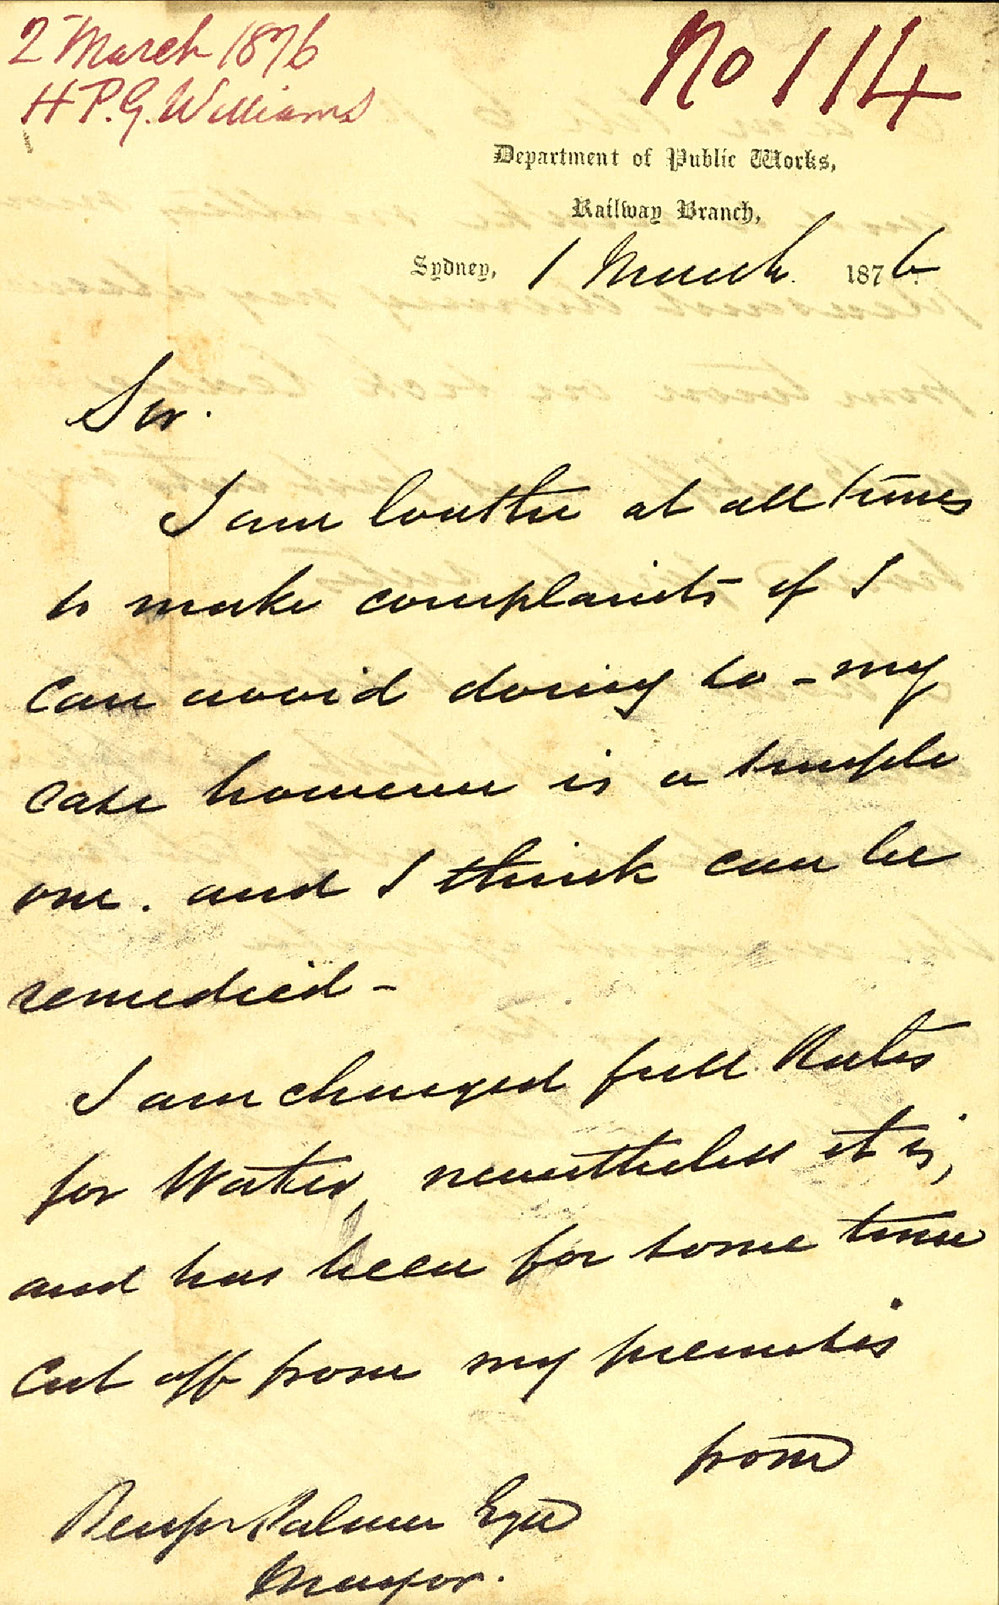 2 March 1876
H P. G. Williams
No 114
Department of Public Works,
Railway Branch,
Sydney, 1 March. 1876
Sir.
I am loathe at all times
to make complaints if I
can avoid doing so - my
case however is a simple
one. and I think can be
remedied -
I am charged full Rates
for Water, nevertheless it is,
and has been for some time
cut off from my premises
from
Palmer Esqre
Mayor.